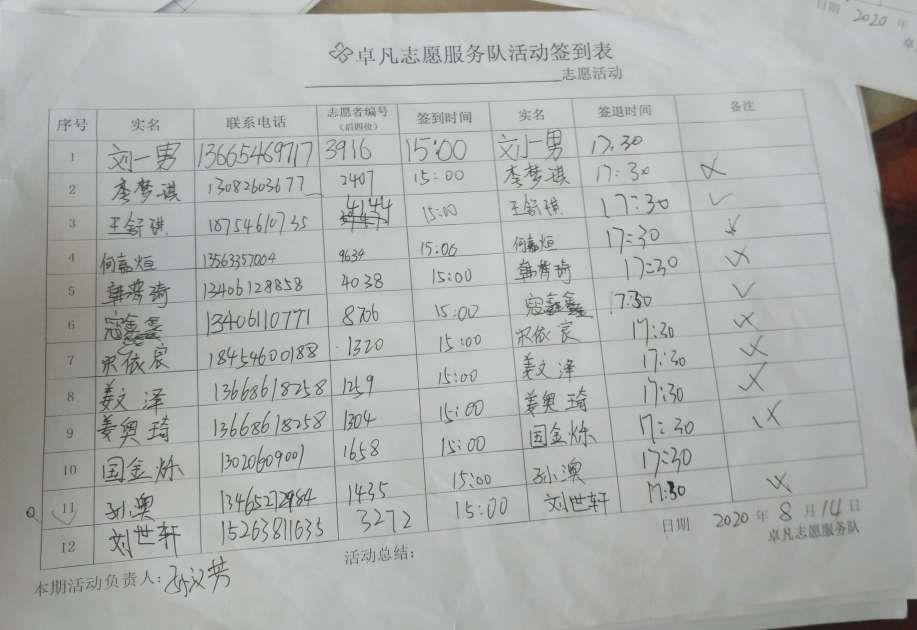 日期 2020 年
卓凡志愿服务队活动签到表
志愿活动
序号 实名 联系电话 志愿者编号（后四位） 签到时间 实名 签退时间 备注
1 刘一男 13665469717 3916 15:00 刘一男 17:30
2 李梦琪 13082603677 2407 15:00 李梦琪 17:30
3 王舒琪 18754610735 4144 15:00 王舒琪 17:30 ✓
4 何嘉烜 13563357004 9634 15:00 何嘉烜 17:30
5 韩梦琦 13406128858 4038 15:00 韩梦琦 17:30
6 寇鑫鑫 13406110771 8706 15:00 寇鑫鑫 17:30 ✓
7 宋依宸 18454600188 1320 15:00 宋依宸 17:30
8 姜文泽 13668618258 1259 15:00 姜文泽 17:30
9 姜奥琦 13668618258 1304 15:00 姜奥琦 17:30
10 国金烁 13020609001 1658 15:00 国金烁 17:30
11 孙澳 13465272984 1435 15:00 孙澳 17:30
12 刘世轩 15263811635 3272 15:00 刘世轩 17:30
本期活动负责人: 活动总结: 日期 2020 年 8 月 14 日
卓凡志愿服务队